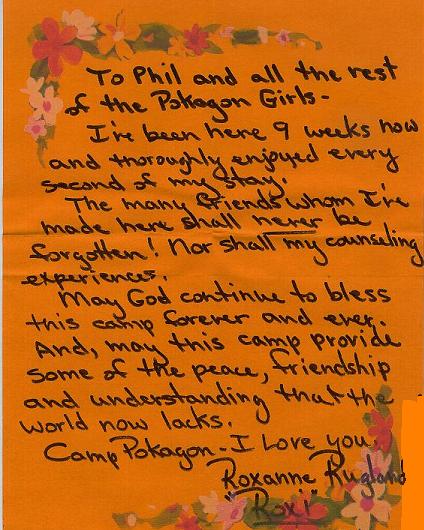 To Phil and all the rest
of the Pokagon Girls-
I've been here 9 weeks now
and thoroughly enjoyed every
second of my stay.
The many friends whom I've
made here shall never be
forgotten! Nor shall my counseling
experiences.
May God continue to bless
this camp forever and ever.
And, may this camp provide
some of the peace, friendship
and understanding that the
world now lacks.
Camp Pokagon - I Love you.
Roxanne Rugland
"Roxi"